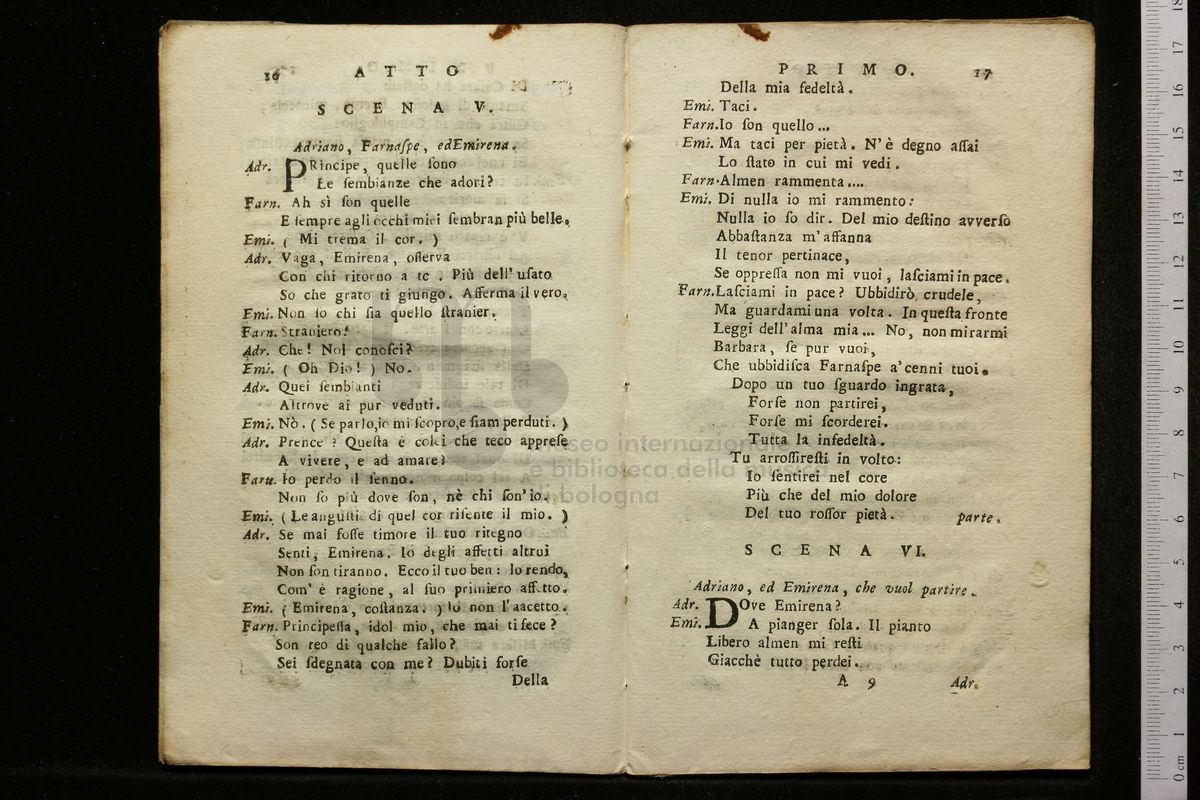 16 A T T O
S C E N A V.
Adriano, Farnaſpe, ed Emirena.
Adr. PRincipe, quelle ſono
Le ſembianze che adori?
Farn. Ah sì ſon quelle
E ſempre agli occhi miei ſembran più belle.
Emi. ( Mi trema il cor. )
Adr. Vaga, Emirena, oſſerva
Con chi ritorno a te . Più dell' uſato
So che grato ti giungo. Afferma il vero.
Emi. Non ſo chi ſia quello ſtranier.
Farn. Straniero!
Adr. Che! Nol conoſci?
Emi. ( Oh Dio! ) No.
Adr. Quei ſembianti
Altrove ai pur veduti.
Emi. Nò. ( Se parlo, io mi ſcopro, e ſiam perduti. )
Adr. Prence ? Queſta é colei che teco appreſe
A vivere, e ad amare?
Farn. Io perdo il ſenno.
Non ſo più dove ſon, nè chi ſon' io.
Emi. ( Le anguſtie di quel cor riſente il mio. )
Adr. Se mai foſſe timore il tuo ritegno
Senti, Emirena. Io degli affetti altrui
Non ſon tiranno. Ecco il tuo ben: lo rendo,
Com' é ragione, al ſuo primiero affetto.
Emi. ( Emirena, coſtanza. ) Io non l'aacetto.
Farn. Principeſſa, idol mio, che mai ti fece?
Son reo di qualche fallo?
Sei ſdegnata con me? Dubiti forſe
Della
P R I M O. 17
Della mia fedeltà.
Emi. Taci.
Farn. Io ſon quello...
Emi. Ma taci per pietà. N'è degno aſſai
Lo ſtato in cui mi vedi.
Farn. Almen rammenta....
Emi. Di nulla io mi rammento:
Nulla io ſo dir. Del mio deſtino avverſo
Abbaſtanza m'affanna
Il tenor pertinace,
Se oppreſſa non mi vuoi, laſciami in pace.
Farn. Laſciami in pace? Ubbidirò, crudele,
Ma guardami una volta. In queſta fronte
Leggi dell'alma mia... No, non mirarmi
Barbara, ſe pur vuoi,
Che ubbidiſca Farnaſpe a'cenni tuoi.
Dopo un tuo ſguardo ingrata,
Forſe non partirei,
Forſe mi ſcorderei.
Tutta la infedeltà.
Tu arroſſireſti in volto:
Io ſentirei nel core
Più che del mio dolore
Del tuo roſſor pietà. parte.
S C E N A VI.
Adriano, ed Emirena, che vuol partire.
Adr. DOve Emirena?
Emi. A pianger ſola. Il pianto
Libero almen mi reſti
Giacchè tutto perdei.
A 9 Adr.
museo internazionale
e biblioteca della musica
di bologna
0 cm 1 2 3 4 5 6 7 8 9 10 11 12 13 14 15 16 17 18